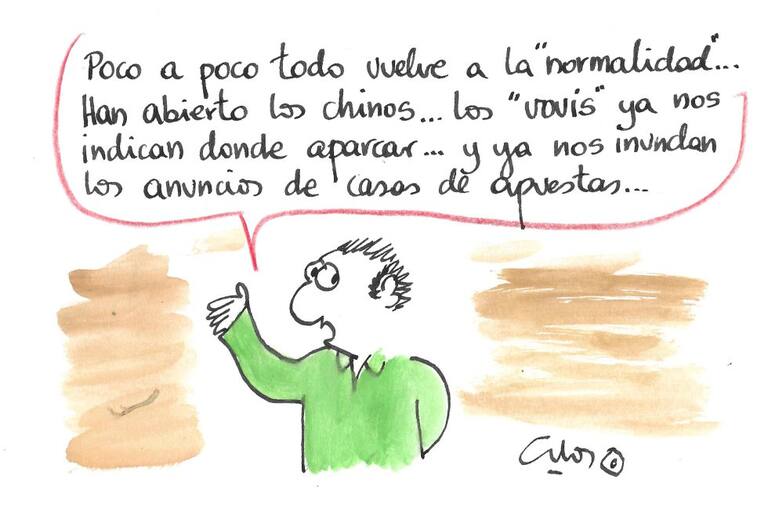 Poco a poco todo vuelve a la "normalidad"...
Han abierto los chinos... los "vovis" ya nos
indican donde aparcar... y ya nos inundan
los anuncios de casas de apuestas...